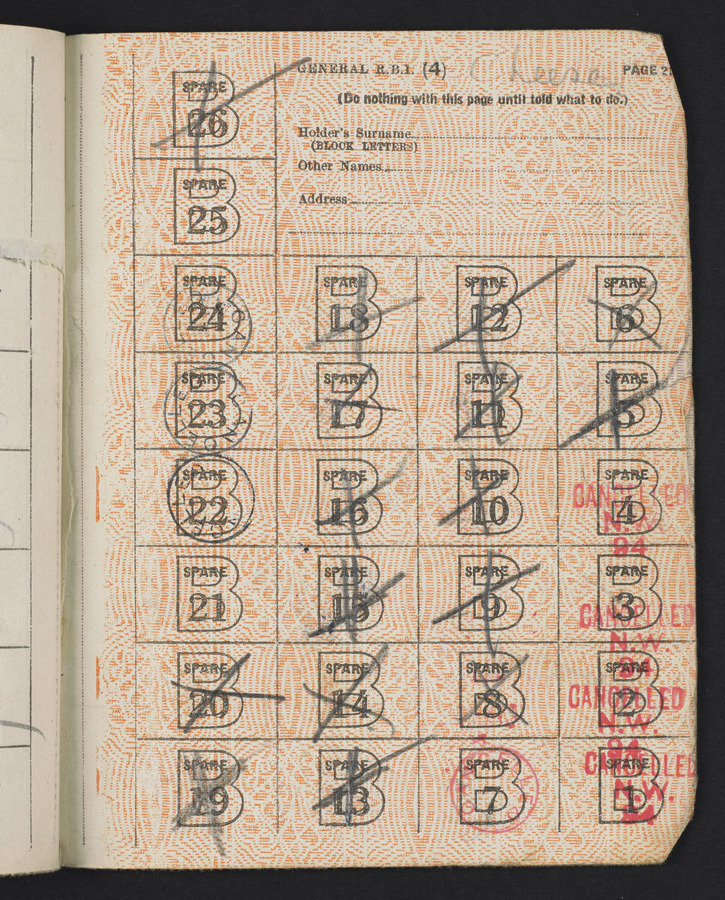 GENERAL R.B.1. (4)
PAGE
(Do nothing with this page until told what to do.)
Holder's Surname
(BLOCK LETTERS)
Other Names
Address
SPARE B 26
SPARE B 25
SPARE B 24 SPARE B 18 SPARE B 12 SPARE B 6
SPARE B 23 SPARE B 17 SPARE B 11 SPARE B 5
SPARE B 22 SPARE B 16 SPARE B 10 SPARE B 4
CANCELLED
N.W.
94
SPARE B 21 SPARE B 15 SPARE B 9 SPARE B 3
CANCELLED
N.W.
SPARE B 20 SPARE B 14 SPARE B 8 SPARE B 2
CANCELLED
N.W.
94
SPARE B 19 SPARE B 13 SPARE B 7 SPARE B 1
CANCELLED
N.W.